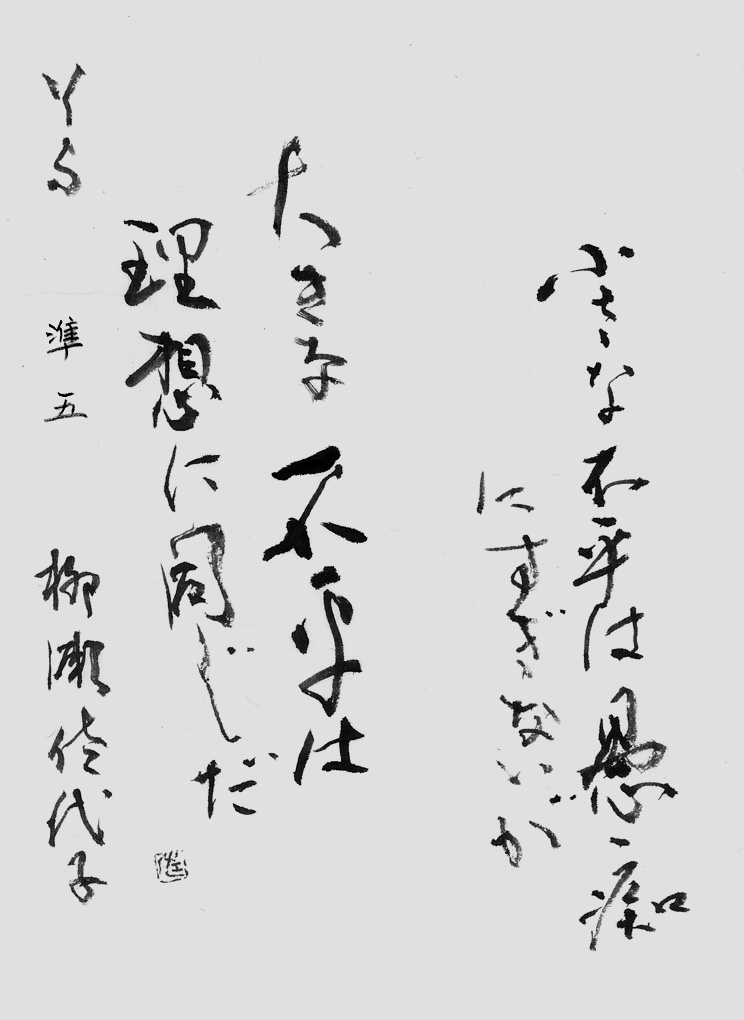 小さな不平は愚痴
にすぎないが
大きな不平は
理想に同じだ
準五
柳瀬佳代子